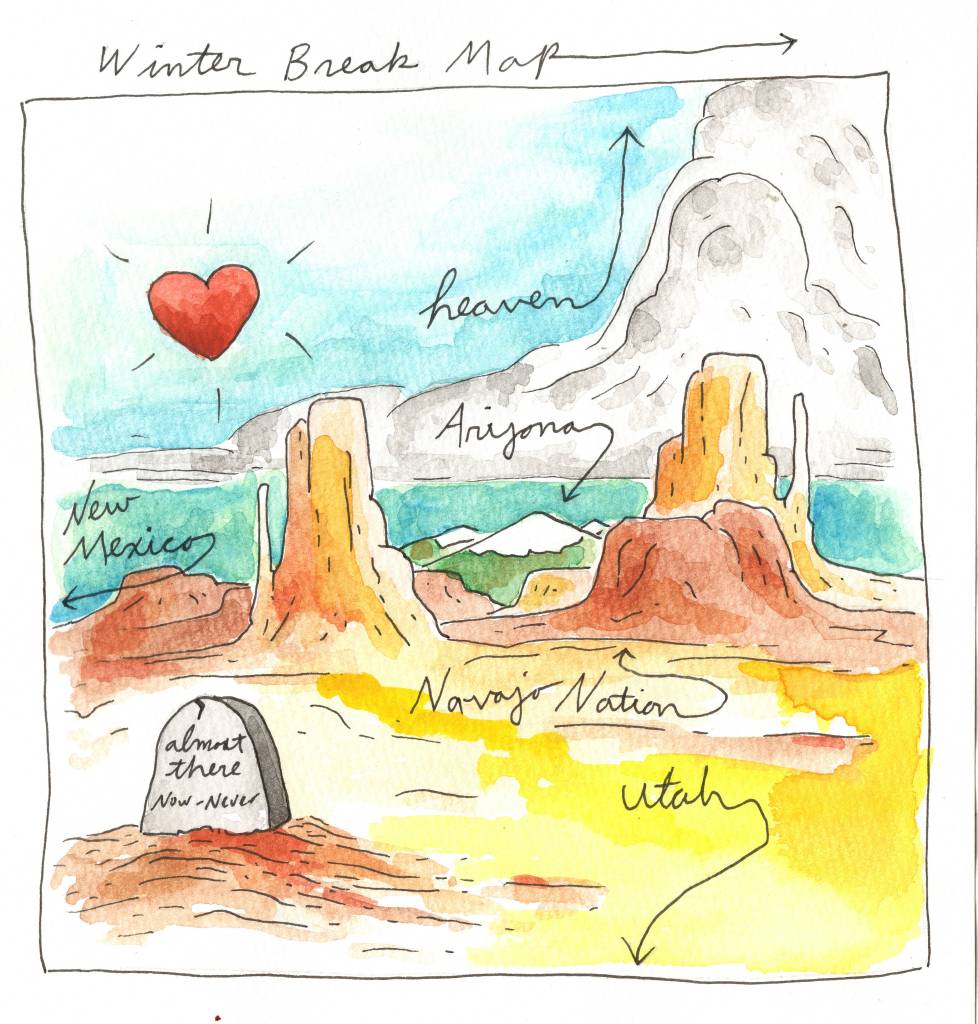 Winter Break Map
heaven
Arizona
New
Mexico
Navajo Nation
almost
there
Now-Never
Utah